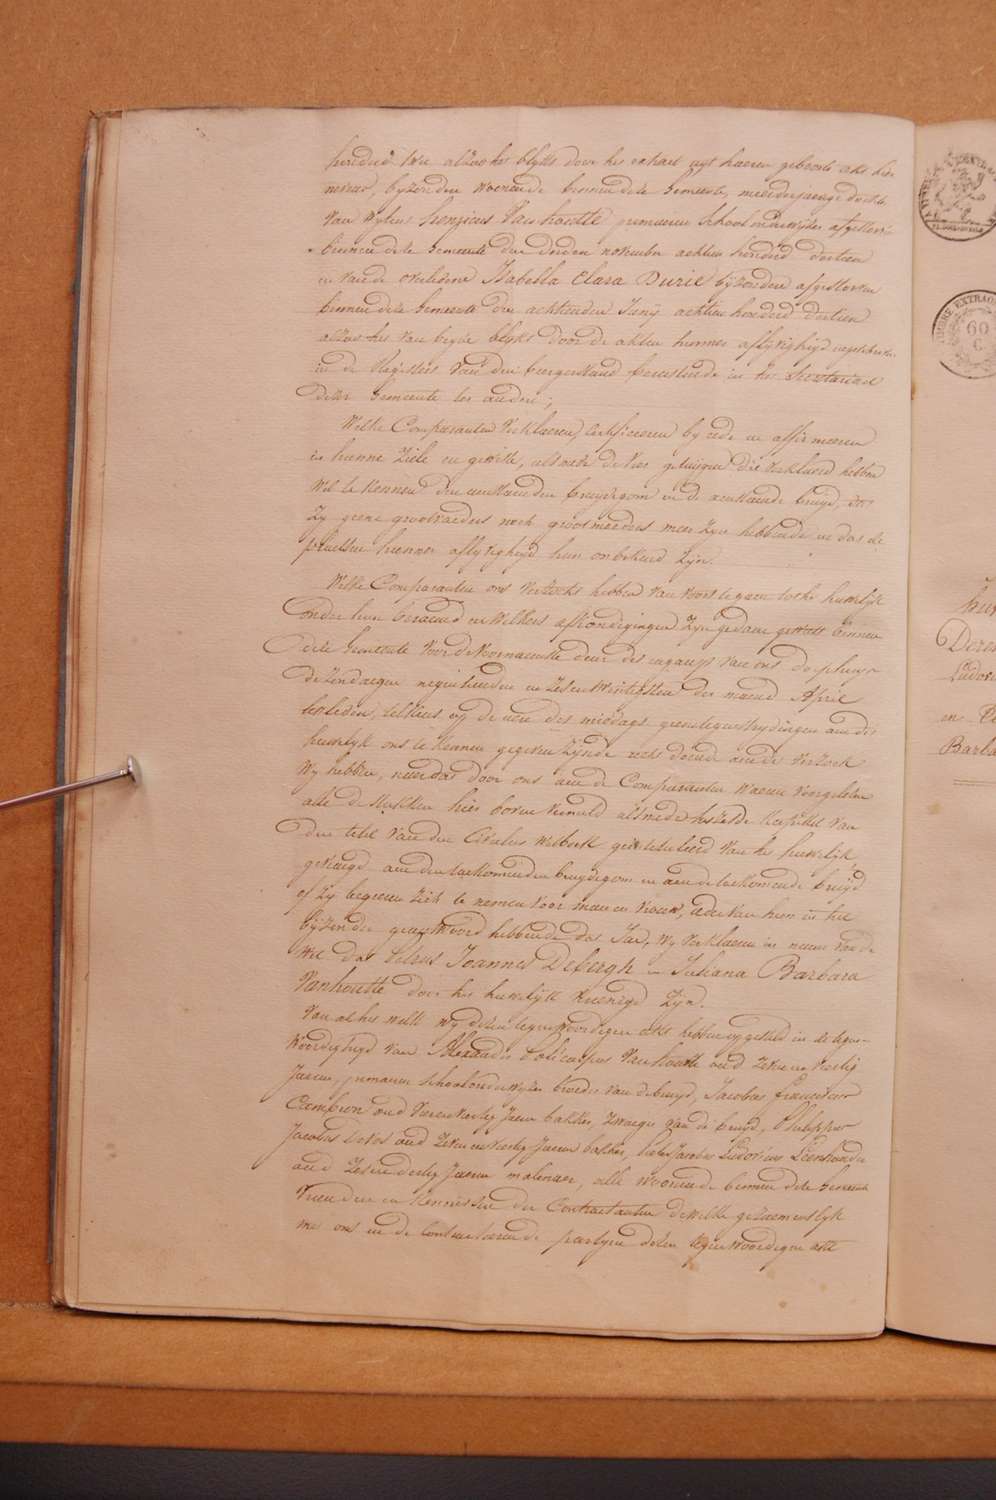 honderd twee alzoo het blykt door het extract uyt haeren geboorte akte hier
neven, byzondere woonende binnen deze Gemeente, meerderjaerige dochter
van wylen Franciscus Vanhoutte primairen Schoolonderwyzer afgestorven
binnen deze Gemeente den derden november achtien honderd dertien
en van de overledene Isabella Clara Durie byzondere afgestorven
binnen deze Gemeente den achtienden Juny achtien honderd dertien
alzoo het van beyde blykt door de akten hunner aflyvigheyd ingeschreven
in de Registers van den burgerstand berustende in het Secretariaet
dezer Gemeente ten anderen;
Welke Comparanten verklaeren, certificeeren by eede en affirmeeren
in hunne ziele en gewisse, alsmede de vier getuygen die verklaerd hebben
wel te kennen den aenstaenden bruydegom en de aenstaende bruyd, dat
zy geene grootvaeders noch grootmoeders meer zyn hebbende en dat de
plaetsen hunner aflyvigheyd hun onbekend zyn.
Welke Comparanten ons verzocht hebben van voorts te gaen tot het huwelyk
onder hun beraemd en welkers afkondigingen zyn gedaen geweest binnen
deze Gemeente voor de voornaemste deur des ingangs van ons dorphuys
de zondaegen negenthienden en zesentwintigsten der maend April
lestleden, telkens op de uer des middags geene tegenstrydingen aen dit
huwelyk ons te kennen gegeven zynde recht doende aen de verzoek
Wy hebben, naer dat door ons aen de Comparanten waeren voorgelezen
alle de stukken hier boven vermeld alsmede het zesde kapittel van
den titel van den Civielen Wetboek geintituleerd van het huwelyk,
gevraegd aen den toekomenden bruydegom en aen de toekomende bruyd
of zy begeeren zich te nemen voor man en vrouw, ider van hun in het
byzonder geantwoord hebbende dat Jae, wy verklaeren in naem van de
Wet dat Petrus Joannes Debergh en Juliana Barbara
Vanhoutte door het huwelyk vereenigd zyn.
Van al het welk wy dezen tegenwoordigen akt hebben opgesteld in de tegen-
woordigheyd van Alexander Policarpus Vanhoutte oud zevenenveertig
Jaeren, primairen schoolonderwyzer broeder van de bruyd, Jacobus Franciscus
Cambron oud veertig Jaeren bakker, zwaeger van de bruyd, Philippus
Jacobus Devos oud zevenenveertig Jaeren bakker, Pieter Jacobus Ludovicus
oud zevenendertig Jaeren molenaer, alle woonende binnen deze Gemeente
vrienden en kennissen der Contractanten dewelke gezaementlyk
met ons en de contracteerende partyen dezen tegenwoordigen akt
TIMBRE EXTRAOR
60
C.
Huw
Ludovi
en
Barba